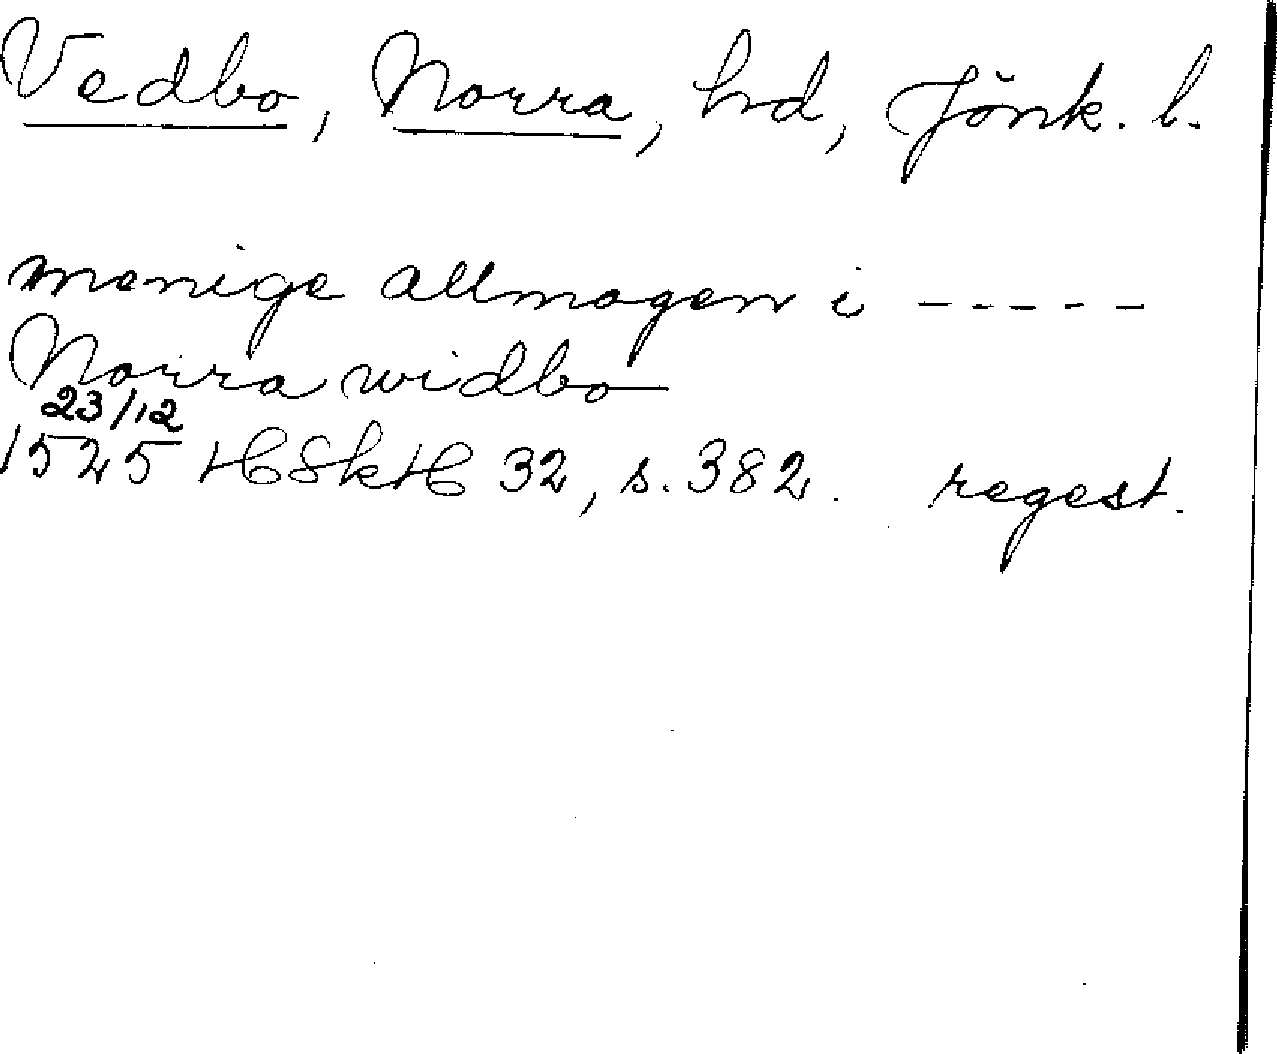 Vedbo, Norra, hd, Jönk. l.
menige allmogen i -----
Norra widbo
23/12
1525 HSkH 32, s. 382. regest.